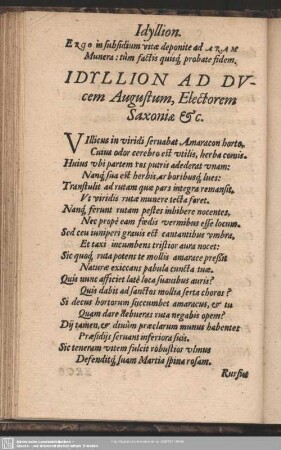 Idyllion.
Ergo in subsidium vitæ deponite ad ARAM
Munera: tùm factis quisq́; probate fidem.
IDYLLION AD DV-
cem Augustum, Electorem
Saxoniæ &c.
VIllicus in viridi seruabat Amaracon horto,
Cuius odor cerebro est vtilis, herba comis.
Huius vbi partem tes putris adederat vnam:
Nanq́; sua est herbis, ar boribusq́; lues:
Transtulit ad rutam quæ pars integra remansit,
Vt viridis rutæ munere tecta foret.
Nanq́; ferunt rutam pestes inhibere nocentes,
Nec propè eam fœdis vermibus esse locum.
Sed ceu iuniperi grauis est cantantibus vmbra,
Et taxi incumbens tristior aura nocet:
Sic quoq́; ruta potens te mollis amarace pressit
Naturæ exiccans pabula cuncta tuæ.
Quis nunc afficiet latè loca suauibus auris?
Quis dabit ad sanctos mollia serta choros?
Si decus hortorum succumbet amaracus, & tu
Quam dare debueras ruta negabis opem?
Dij tamen, & diuûm præclarum munus habentes
Præsidijs seruant inferiora suis.
Sic teneram vitem fulcit robustior vlmus
Defenditq́; suam Martia spina rosam.
Rursus